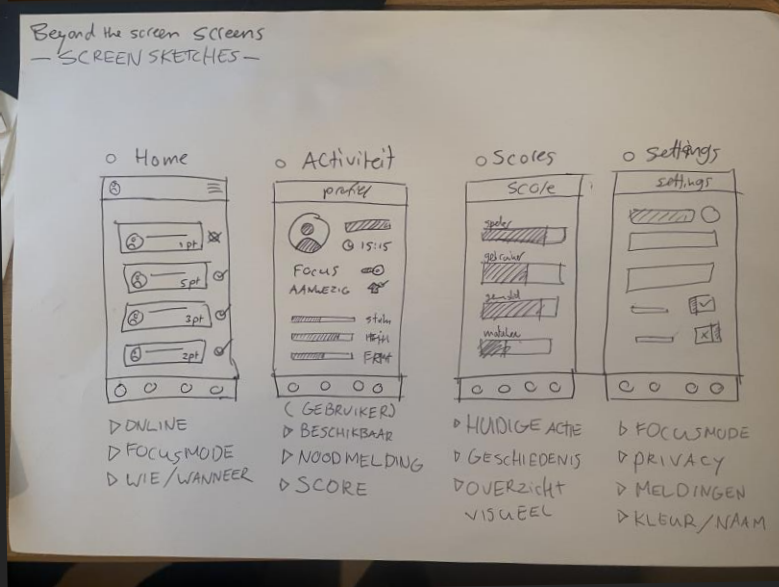 Beyond the screen screens
- SCREEN SKETCHES -
○ Home
1pt
5pt
3pt
2pt
▷ ONLINE
▷ FOCUSMODE
▷ WIE/WANNEER
○ ACTiviteit
profiel
15:15
FOCUS
AANWEZIG
(GEBRUIKER)
▷ BESCHIKBAAR
▷ NOODMELDING
▷ SCORE
○ Scores
SCORE
speler
▷ HUIDIGE ACTIE
▷ GESCHIEDENIS
▷ OVERZICHT
VISUEEL
○ Settings
settings
▷ FOCUSMODE
▷ PRIVACY
▷ MELDINGEN
▷ KLEUR/NAAM